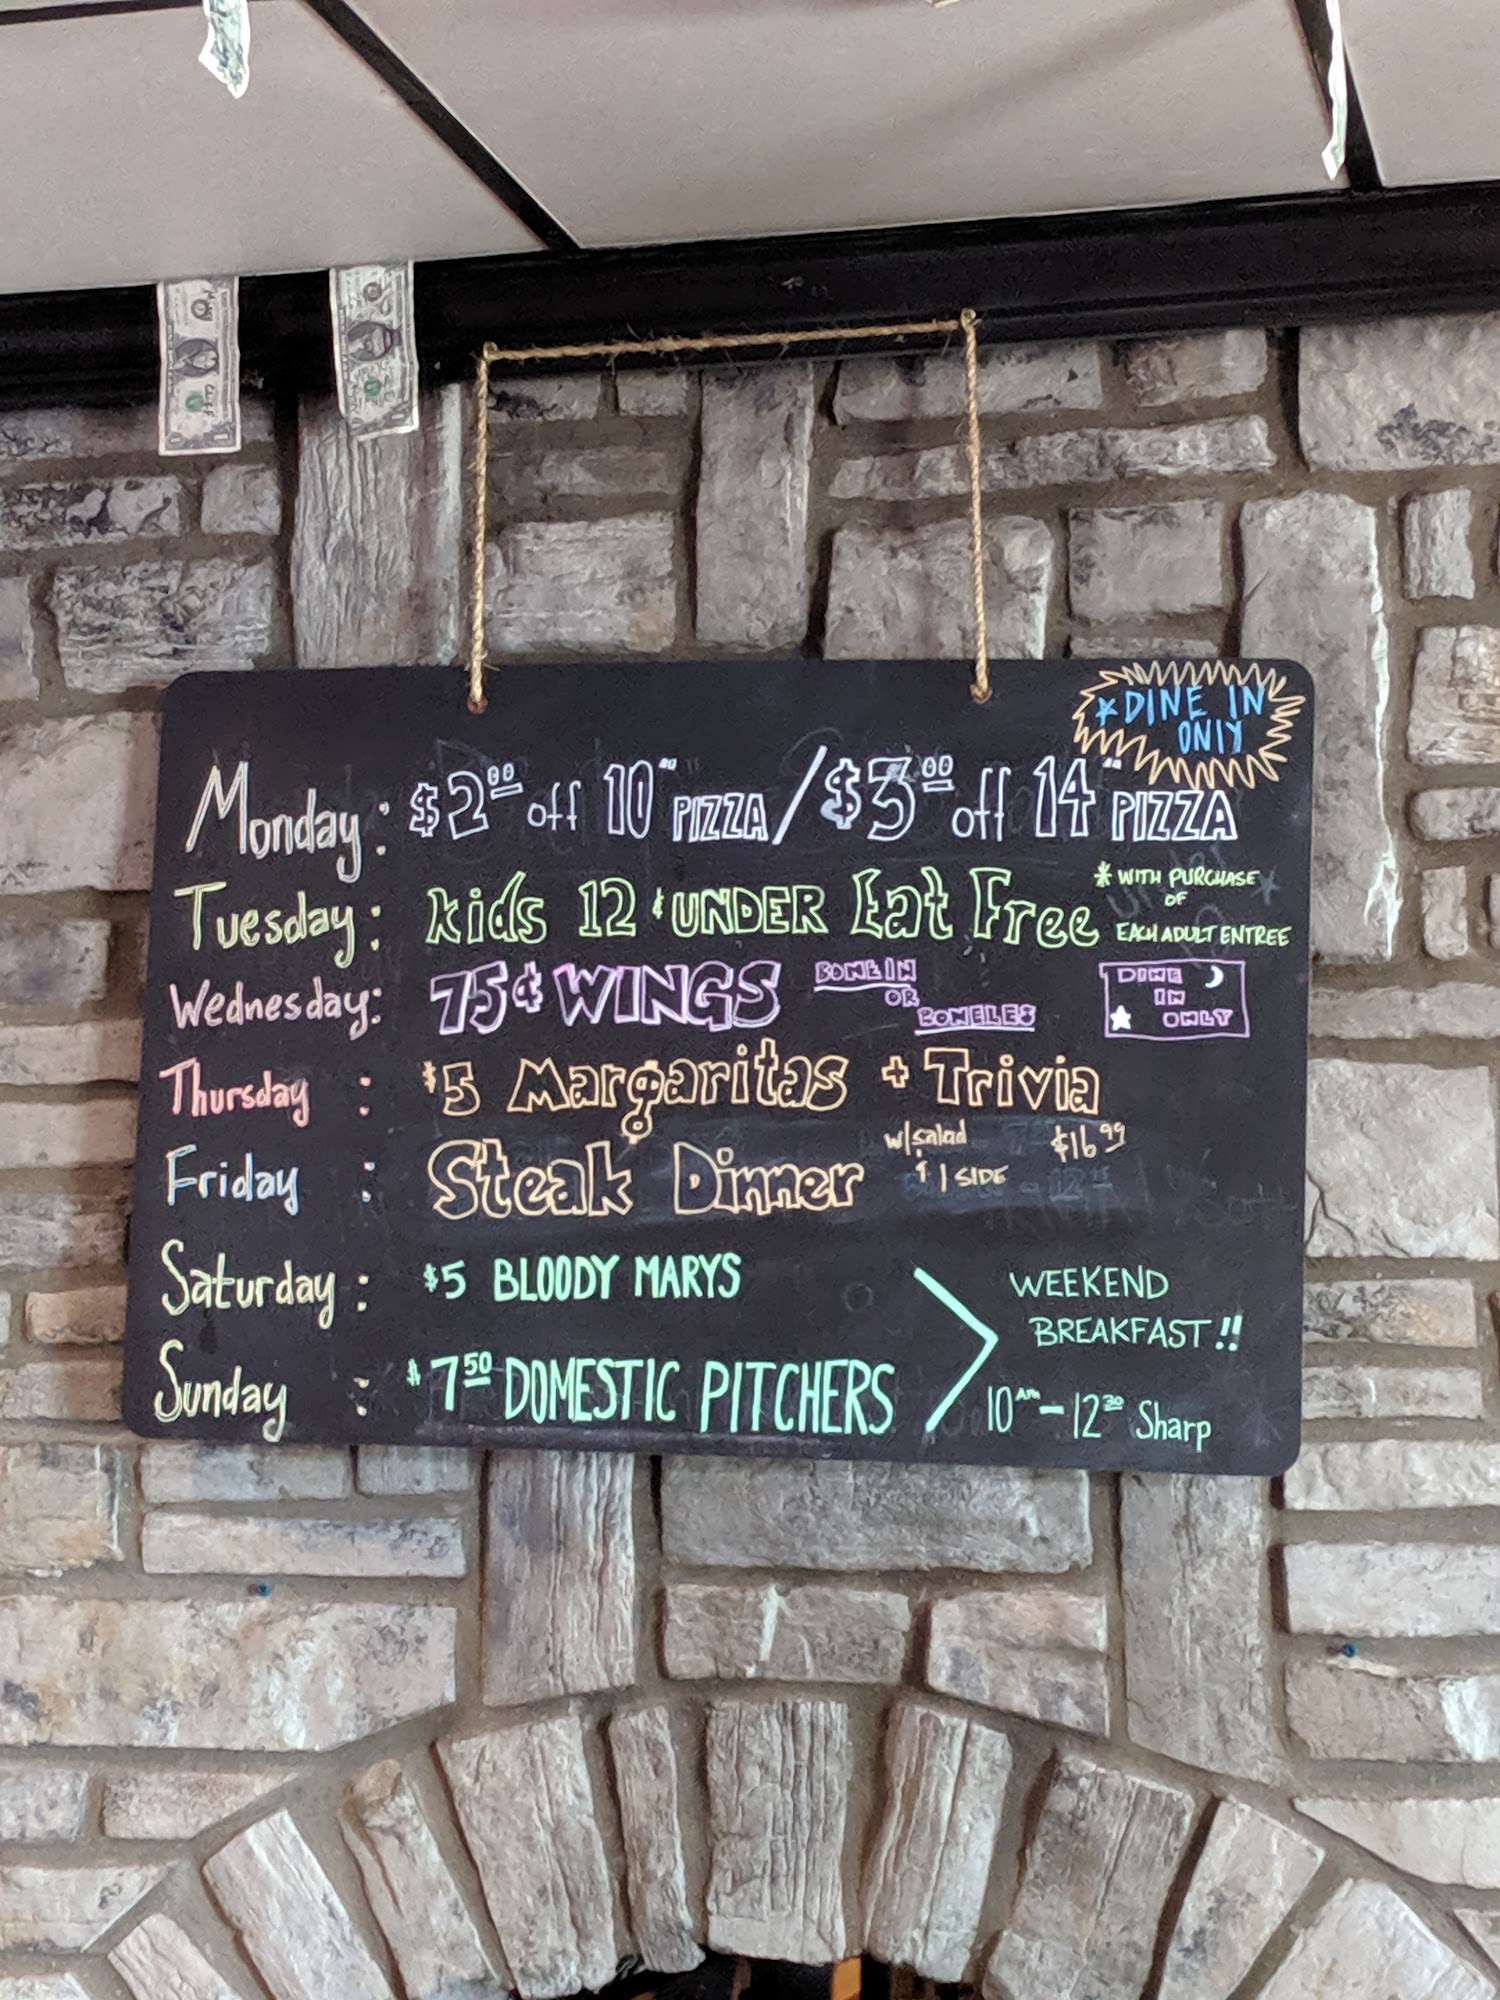 *DINE IN
ONLY
Monday: $2⁰⁰ off 10" PIZZA / $3⁰⁰ off 14" PIZZA
Tuesday: Kids 12 & UNDER Eat Free * WITH PURCHASE
OF
EACH ADULT ENTREE
Wednesday: 75¢ WINGS BONE IN
OR
BONELES
DINE
IN
ONLY
Thursday : $5 Margaritas + Trivia
Friday : Steak Dinner w/salad $16⁹⁹
& 1 SIDE
Saturday : $5 BLOODY MARYS
Sunday : $7⁵⁰ DOMESTIC PITCHERS
WEEKEND
BREAKFAST!!
10ᴬᴹ - 12³⁰ Sharp